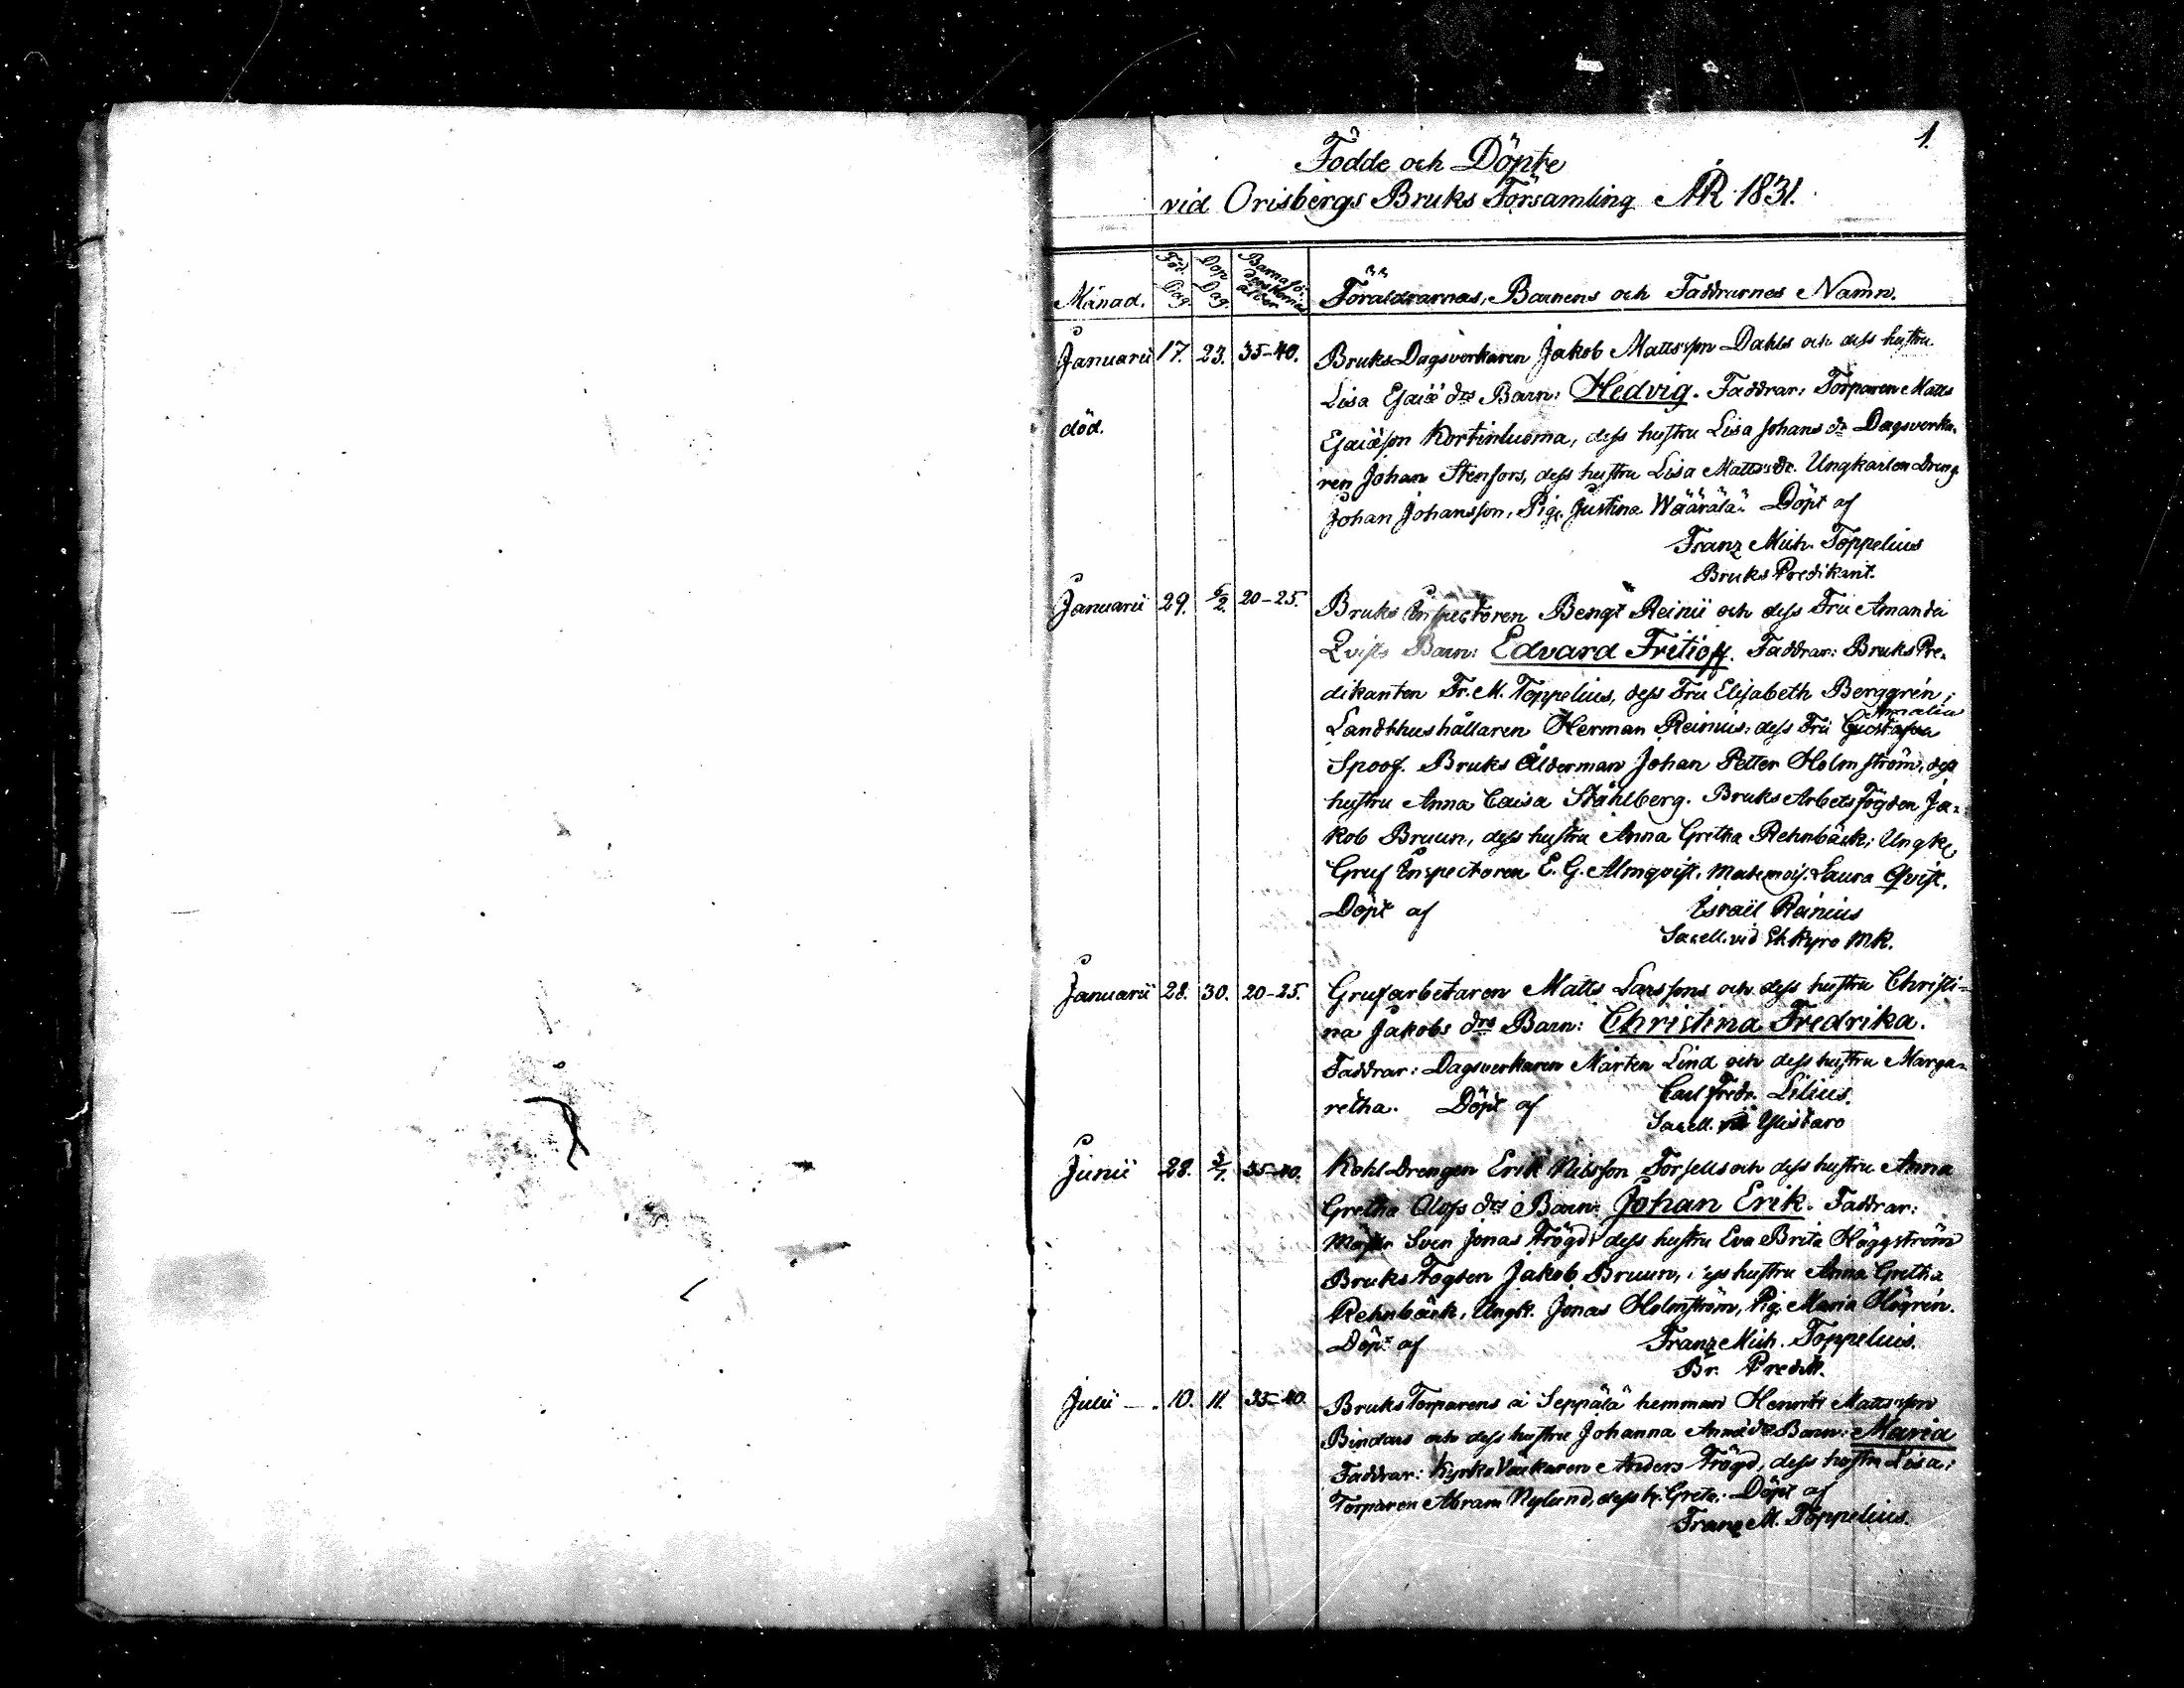 1.
Födde och Döpte
vid Orisbergs Bruks Församling ÅR 1831.
Månad. Föd. Dag Dop Dag. Barnaföderskornas ålder Föräldrarnas, Barnens och Faddrarnes Namn.
Januarii 17. 23. 35-40. Bruks Dagsverkaren Jakob Mattsson Dahls och dess hustru
Lisa Esaiæ drs Barn: Hedvig. Faddrar: Torparen Matts
död. Esaiæson Kortinluoma, dess hustru Lisa Johans dr Dagsverka-
ren Johan Stenfors, dess hustru Lisa Matts dr. Ungkarlen Dreng
Johan Johansson, Pig. Justina Wäärälä. Döpt af
Franz Mich. Toppelius
Bruks Predikant.
Januarii 29. 6/2. 20-25. Bruks Inspectoren Bengt Reinii och dess Fru Amanda
Qvists Barn: Edvard Fritioff. Faddrar: Bruks Pre-
dikanten Fr. M. Toppelius, dess Fru Elisabeth Berggrén;
Amalia
Landthushållaren Herman Reinius, dess Fru Gustafva
Spoof. Bruks Ålderman Johan Petter Holmström, dess
hustru Anna Caisa Ståhlberg. Bruks Arbets fogden Ja-
kob Bruun, dess hustru Anna Gretha Rehnbäck; Ungk.
Gruf Inspectoren E. G. Almqvist, Mademois. Laura Qvist.
Döpt af Israël Reinius
Sacell. vid Storkyro MK.
Januarii 28. 30. 20-25. Grufarbetaren Matts Larssons och dess hustru Christi-
na Jakobs drs Barn: Christina Fredrika.
Faddrar: Dagsverkaren Mårten Lind och dess hustru Marga-
retha. Döpt af Carl Fredr. Lilius.
Sacell. Ylistaro
Junii 28. 3/7. 35-40. Kohl Drengen Erik Nilsson Forsells och dess hustru Anna
Gretha Olofs drs Barn: Johan Erik. Faddrar:
Mäster Sven Jonas Frögd, dess hustru Eva Brita Häggström
Bruks Fogden Jakob Bruun, dess hustru Anna Gretha
Rehnbäck, Ungk. Jonas Holmström, Pig. Maria Högrén.
Döpt af Franz Mich. Toppelius.
Br. Predik.
Julii 10. 11. 35-40. Bruks Torparens å Seppälä hemman Henrik Mattsson
Bindars och dess hustru Johanna Barn: Maria
Faddrar: Kyrko Väktaren Anders Frögd, dess hustru Lisa;
Torparen Abram Nylund, dess h. Greta. Döpt af
Franz M. Toppelius.